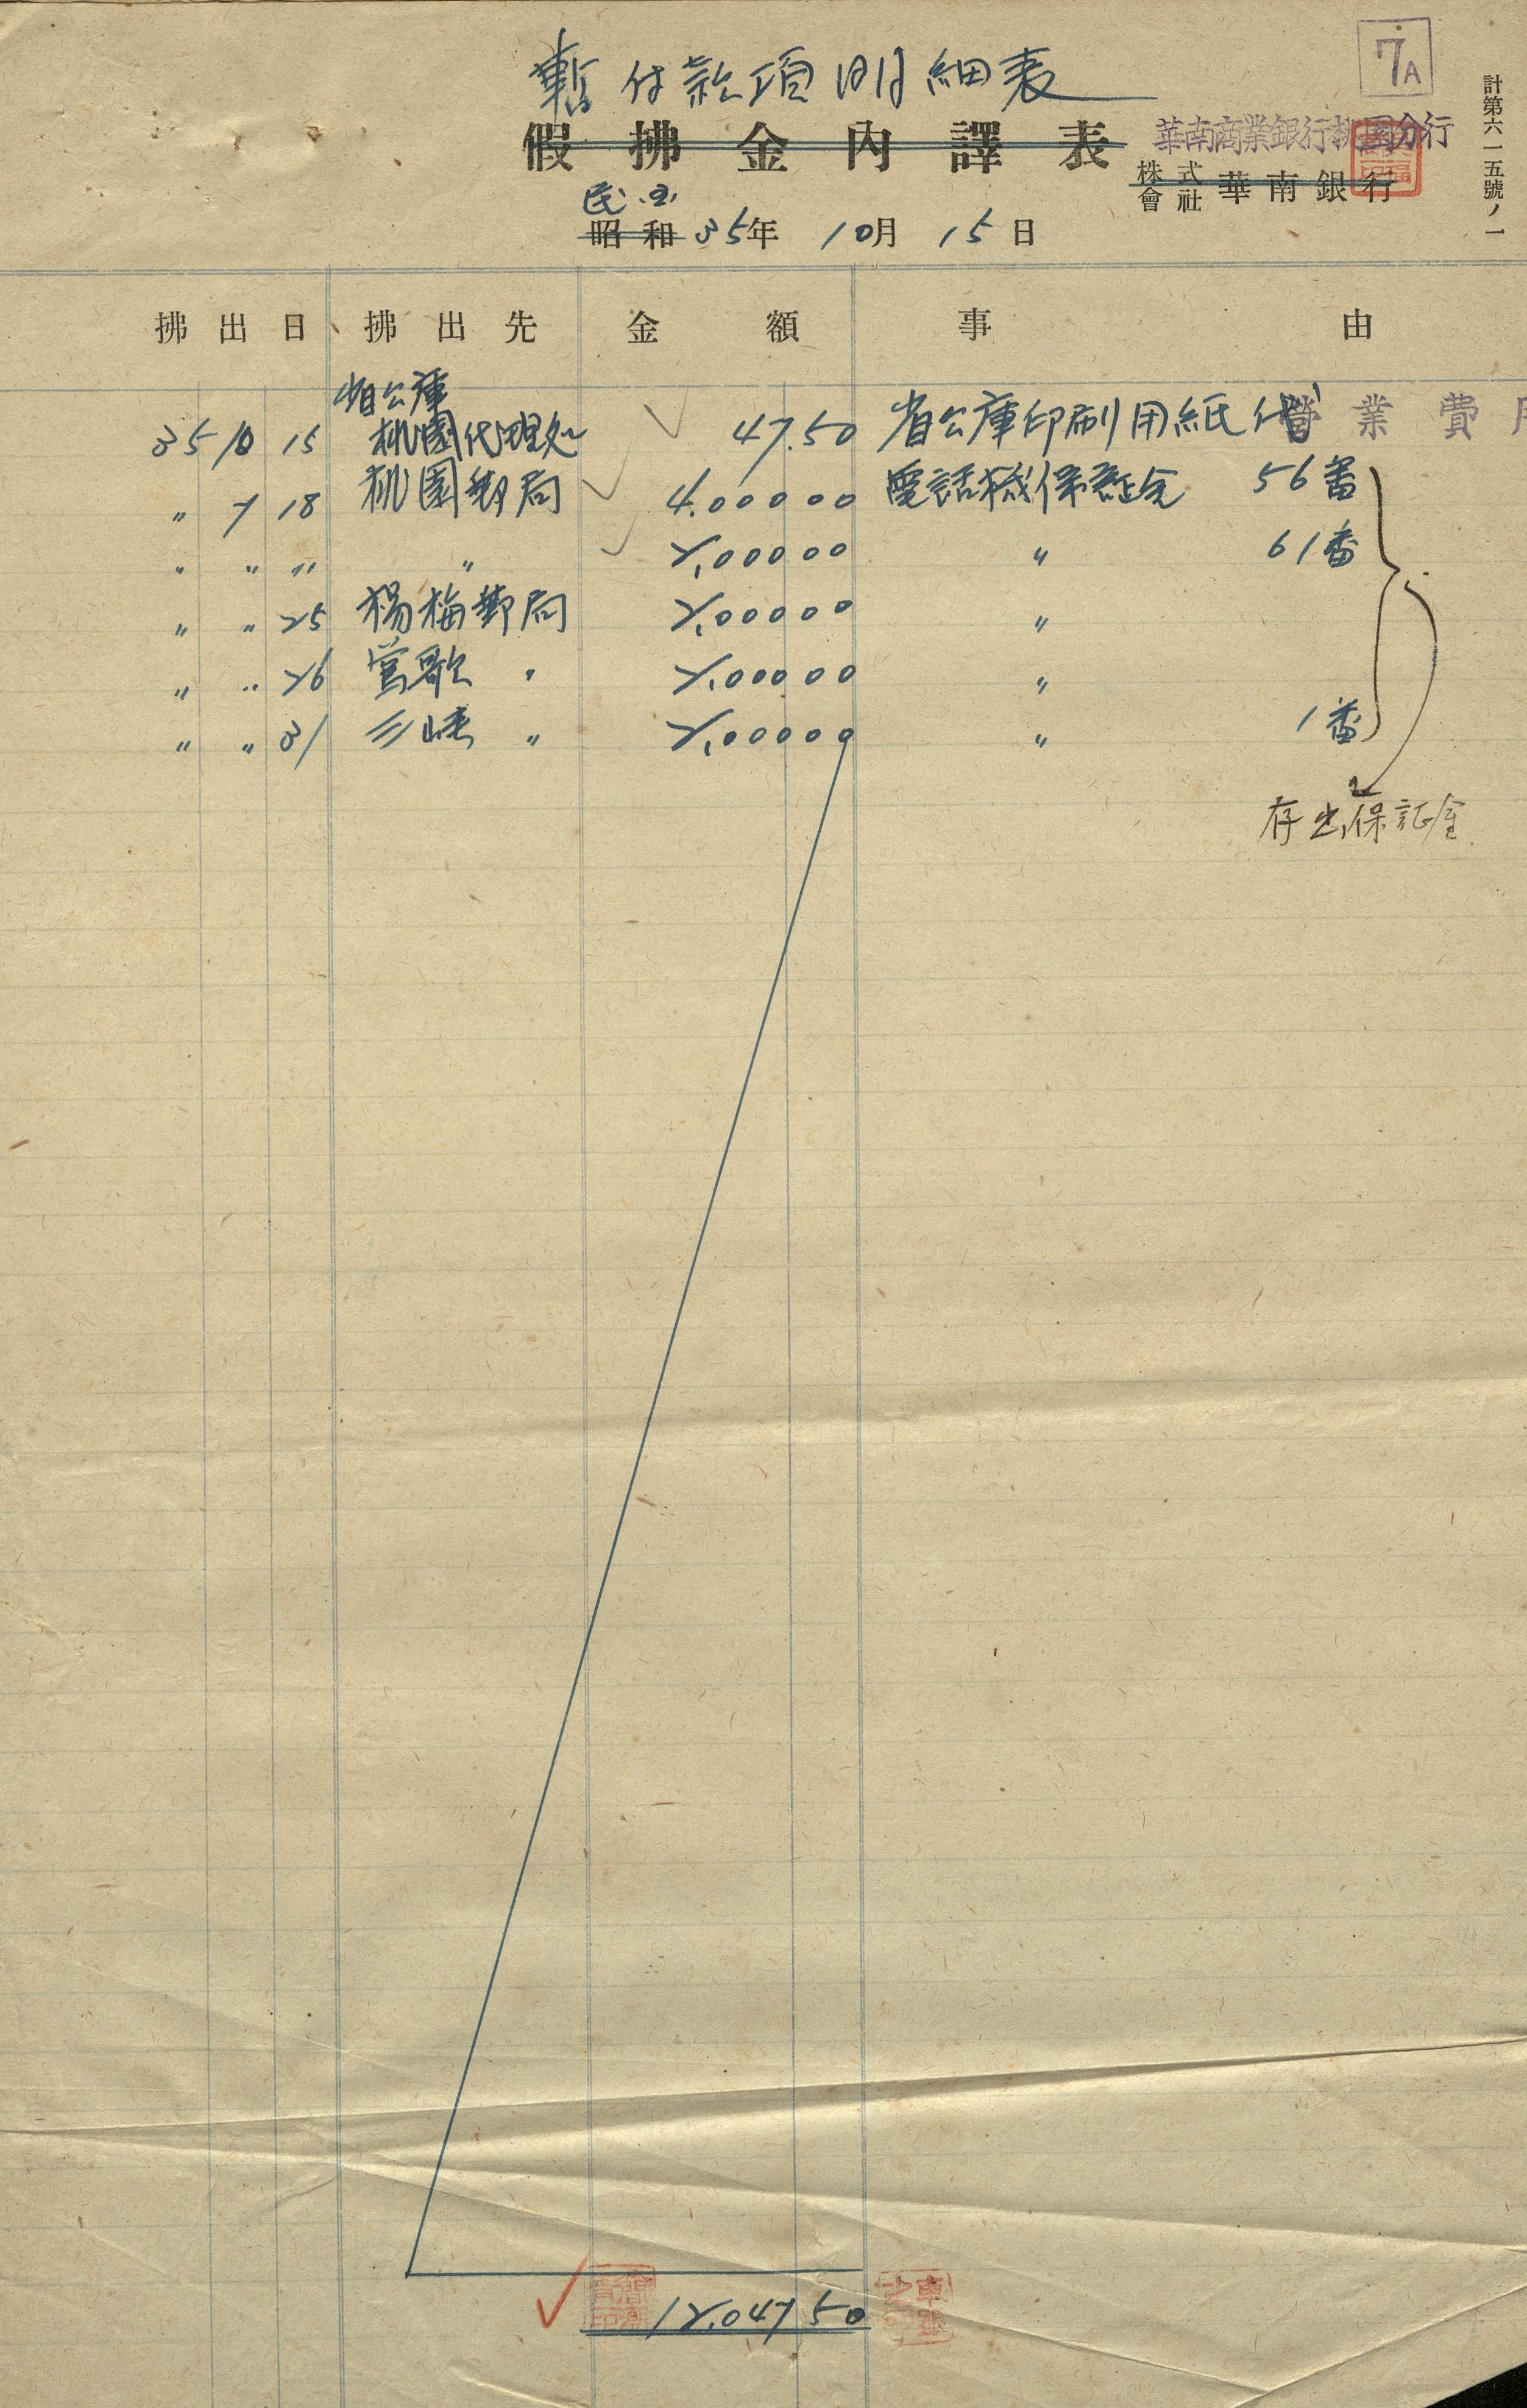 7A
計第六一五號ノ一
暫付款項明細表
假拂金內譯表
華南商業銀行桃園分行
株式會社 華南銀行
民國
昭和 35年 10月 15日
拂出日 拂出先 金額 事由
省公庫
35 10 15 桃園代理処 47.50 省公庫印刷用紙代 營業費用
〃 7 18 桃園郵局 4,000 00 電話機保証金 56番
〃 〃 〃 〃 2,000 00 〃 61番
〃 〃 25 楊梅郵局 2,000 00 〃
〃 〃 26 鶯歌 〃 2,000 00 〃
〃 〃 31 三峡 〃 2,000 00 〃 1番
存出保証金
12,047 50